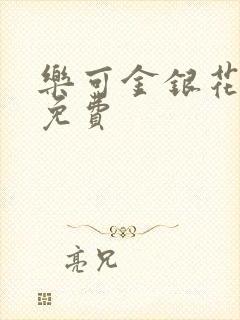 樂可金銀花
免費
亮兄